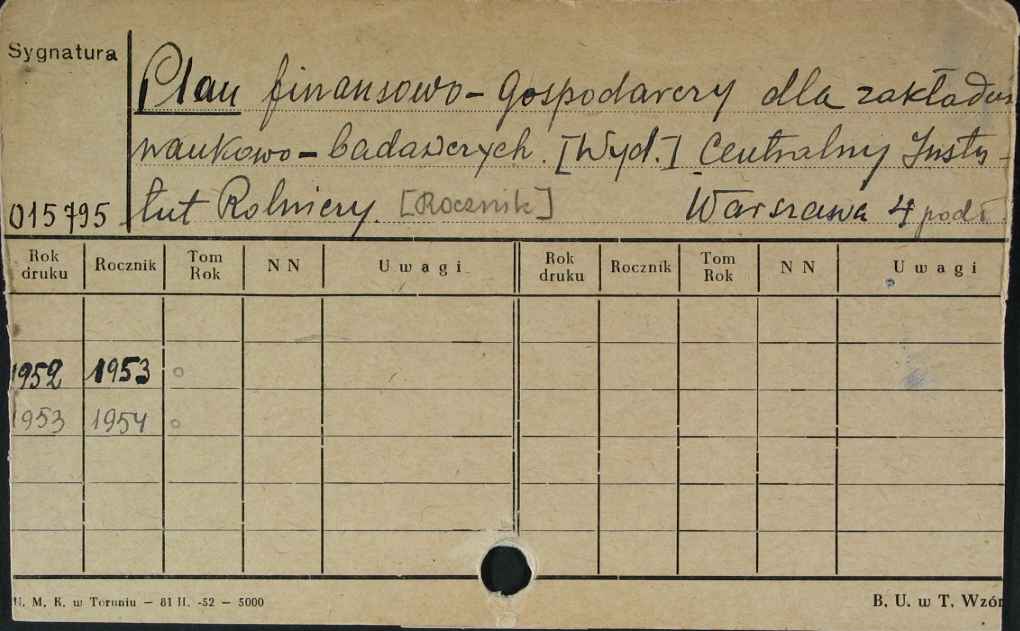 Sygnatura
Plan finansowo-gospodarczy dla zakładów
naukowo-badawczych. [Wyd.] Centralny Insty-
015795 tut Rolniczy. [Rocznik] Warszawa 4 podł.
Rok druku Rocznik Tom Rok NN Uwagi Rok druku Rocznik Tom Rok NN Uwagi
1952 1953 o
1953 1954 o
U. M. K. w Toruniu — 81 II. -52 — 5000 B. U. w T. Wzór